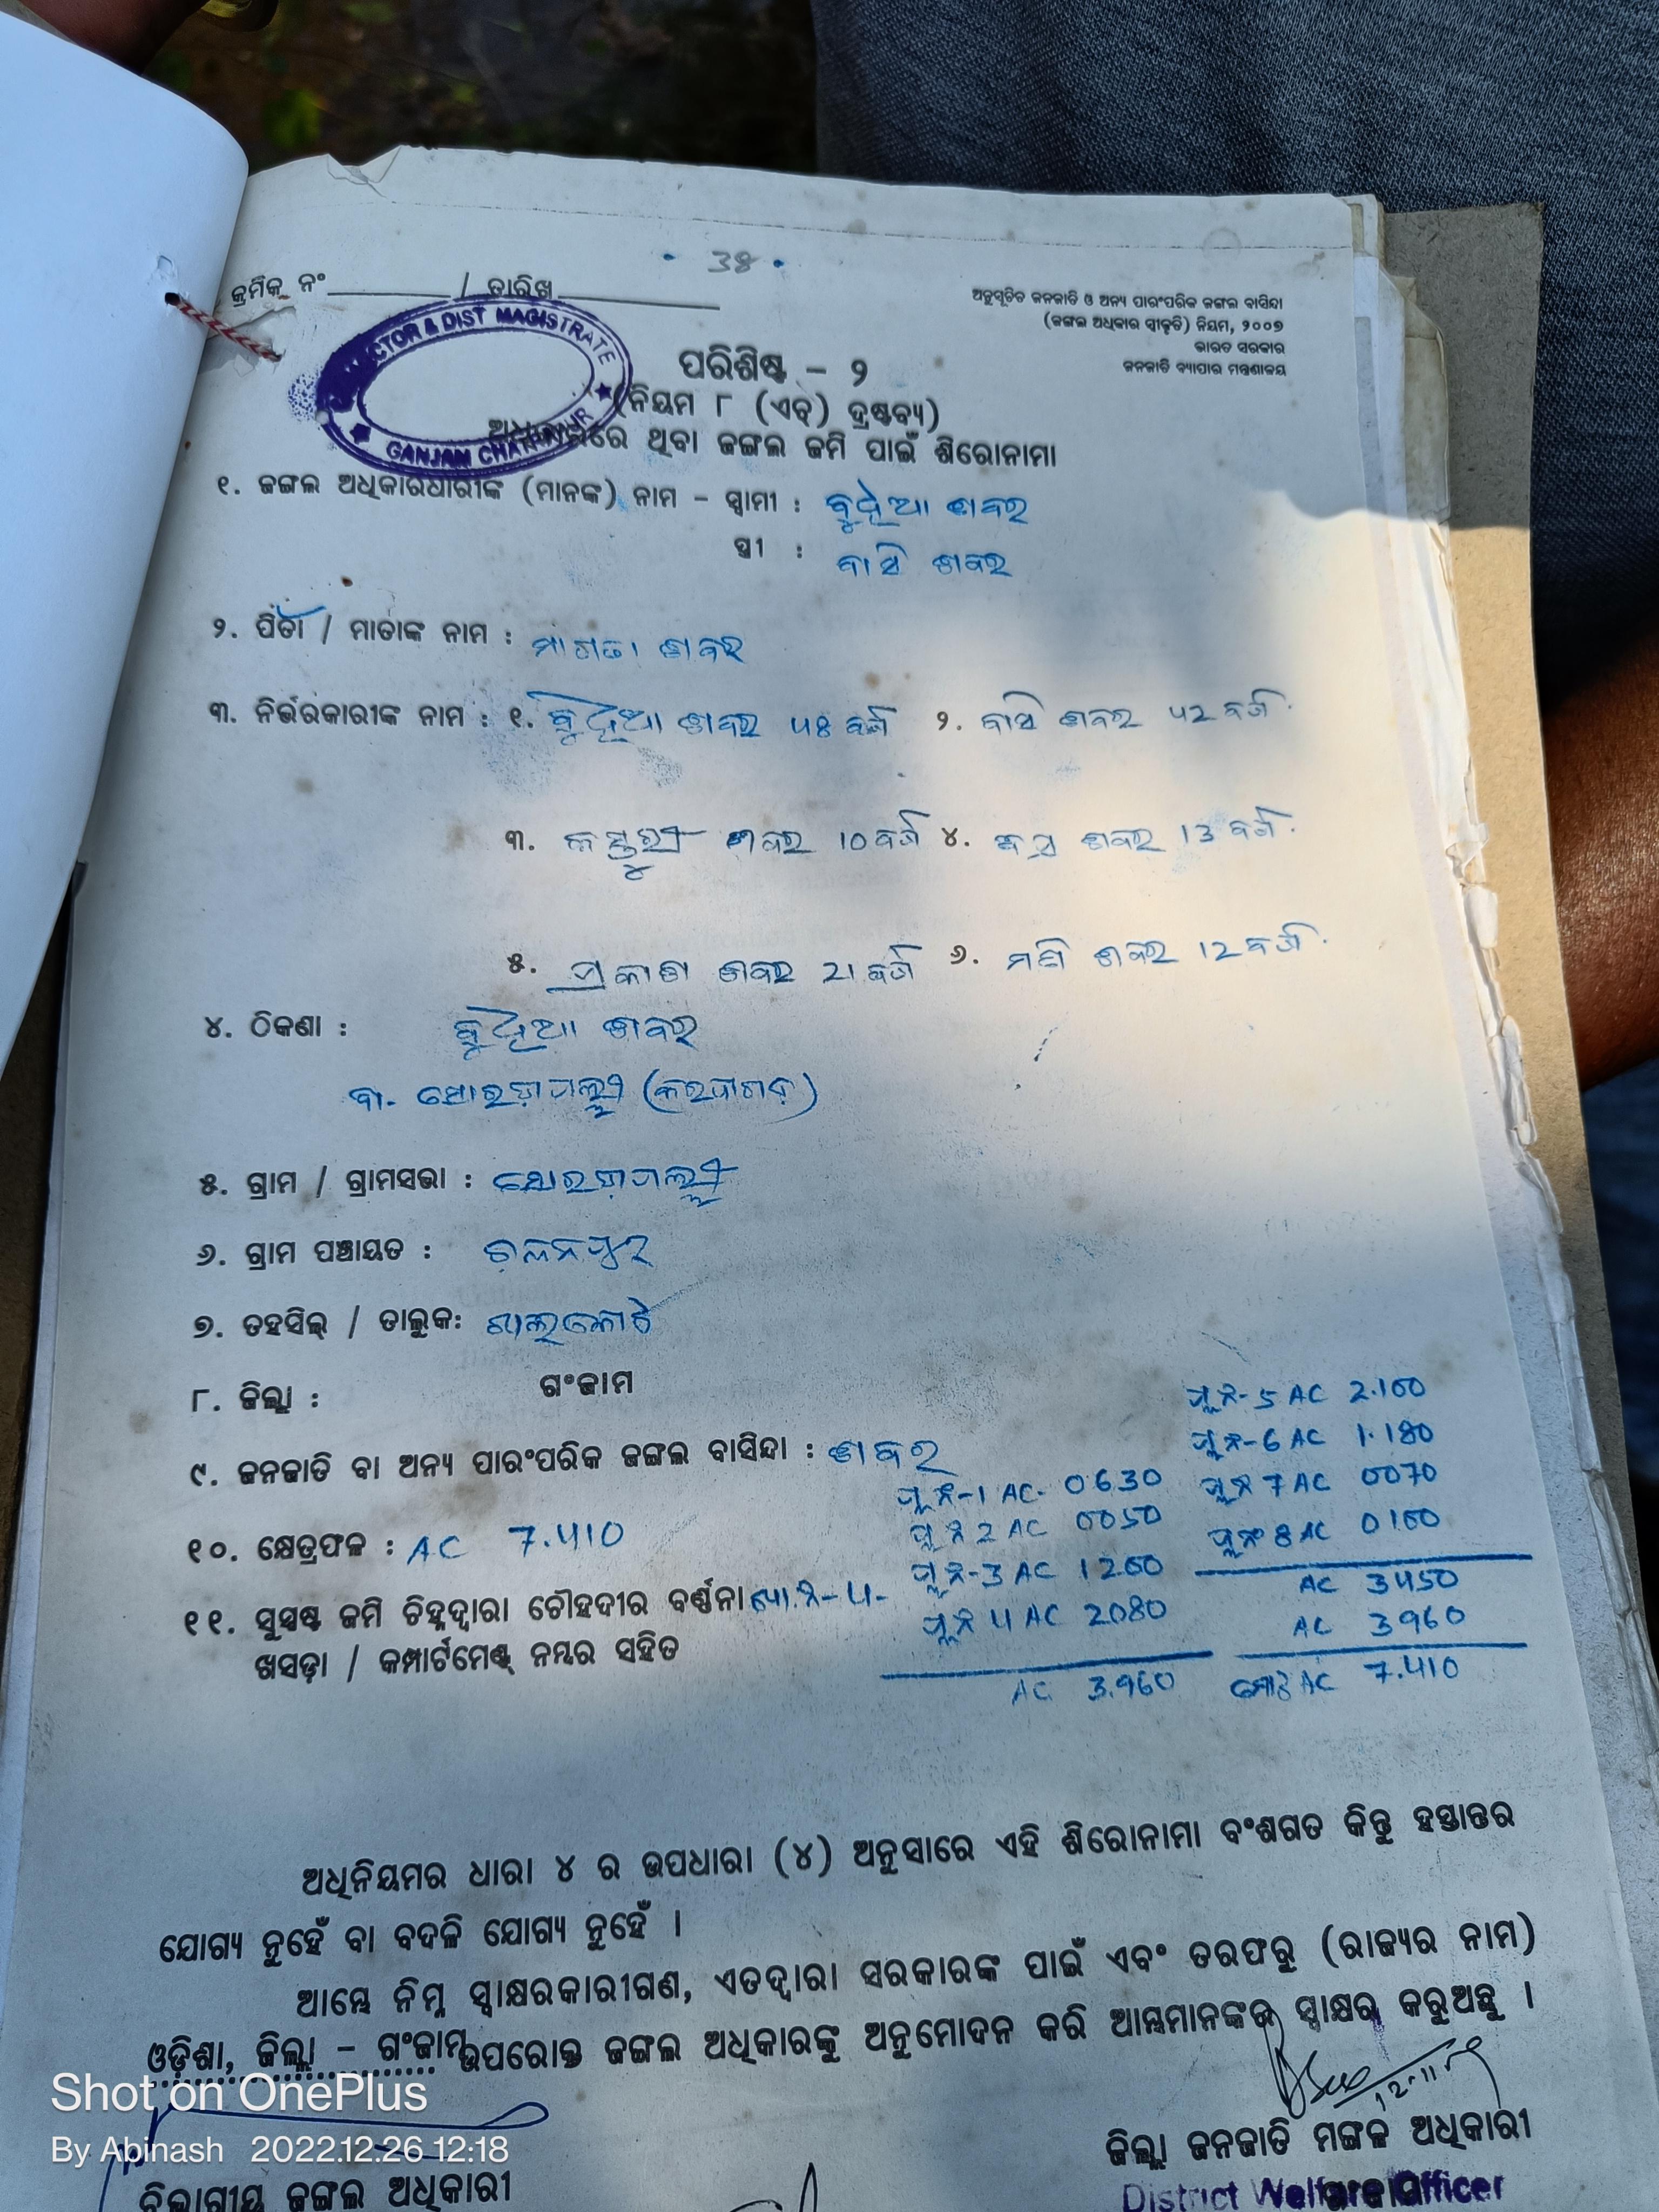 • 38 •
କ୍ରମିକ ନଂ / ତାରିଖ
ଅନୁସୂଚିତ ଜନଜାତି ଓ ଅନ୍ୟ ପାରଂପରିକ ଜଙ୍ଗଲ ବାସିନ୍ଦା
(ଜଙ୍ଗଲ ଅଧିକାର ସ୍ୱୀକୃତି) ନିୟମ, ୨୦୦୭
ଭାରତ ସରକାର
ଜନଜାତି ବ୍ୟାପାର ମନ୍ତ୍ରଣାଳୟ
CTOR & DIST MAGISTRATE
GANJAM CHATRAPUR
ପରିଶିଷ୍ଟ – ୨
(ନିୟମ ୮ (ଏଚ୍) ଦ୍ରଷ୍ଟବ୍ୟ)
ଥିବା ଜଙ୍ଗଲ ଜମି ପାଇଁ ଶିରୋନାମା
୧. ଜଙ୍ଗଲ ଅଧିକାରଧାରୀଙ୍କ (ମାନଙ୍କ) ନାମ – ସ୍ୱାମୀ : ବୁଧିଆ ଶବର
ସ୍ତ୍ରୀ : ବାସି ଶବର
୨. ପିତା / ମାତାଙ୍କ ନାମ : ଶବର
୩. ନିର୍ଭରକାରୀଙ୍କ ନାମ : ୧. ବୁଧିଆ ଶବର ବର୍ଷ ୨. ବାସି ଶବର ବର୍ଷ
୩. କସ୍ତୁରୀ ଶବର 10 ବର୍ଷ ୪. ଶବର 13 ବର୍ଷ
୫. ପ୍ରକାଶ ଶବର 21 ବର୍ଷ ୬. ମଣି ଶବର 12 ବର୍ଷ
୪. ଠିକଣା : ବୁଧିଆ ଶବର
ସୋରଡ଼ାପଲ୍ଲୀ
୫. ଗ୍ରାମ / ଗ୍ରାମସଭା : ସୋରଡ଼ାପଲ୍ଲୀ
୬. ଗ୍ରାମ ପଞ୍ଚାୟତ :
୭. ତହସିଲ୍ / ତାଲୁକ:
୮. ଜିଲ୍ଲା : ଗଂଜାମ
୯. ଜନଜାତି ବା ଅନ୍ୟ ପାରଂପରିକ ଜଙ୍ଗଲ ବାସିନ୍ଦା : ଶବର
୧୦. କ୍ଷେତ୍ରଫଳ : AC 7.410
୧୧. ସୁସ୍ପଷ୍ଟ ଜମି ଚିହ୍ନଦ୍ୱାରା ଚୌହଦୀର ବର୍ଣ୍ଣନା
ଖସଡ଼ା / କମ୍ପାର୍ଟମେଣ୍ଟ୍ ନମ୍ବର ସହିତ
ପ୍ଲନ-1 AC- 0630
ପ୍ଲନ 2 AC 0050
ପ୍ଲନ-3 AC 1200
ପ୍ଲନ 4 AC 2080
AC 3.960
ପ୍ଲନ-5 AC 2.100
ପ୍ଲନ-6 AC 1.180
ପ୍ଲନ 7 AC 0070
ପ୍ଲନ 8 AC 0100
AC 3450
AC 3960
ମୋଟ AC 7.410
ଅଧିନିୟମର ଧାରା ୪ ର ଉପଧାରା (୪) ଅନୁସାରେ ଏହି ଶିରୋନାମା ବଂଶଗତ କିନ୍ତୁ ହସ୍ତାନ୍ତର
ଯୋଗ୍ୟ ନୁହେଁ ବା ବଦଳି ଯୋଗ୍ୟ ନୁହେଁ ।
ଆମ୍ଭେ ନିମ୍ନ ସ୍ୱାକ୍ଷରକାରୀଗଣ, ଏତଦ୍ୱାରା ସରକାରଙ୍କ ପାଇଁ ଏବଂ ତରଫରୁ (ରାଜ୍ୟର ନାମ)
ଓଡ଼ିଶା, ଜିଲ୍ଲା – ଗଂଜାମ ଉପରୋକ୍ତ ଜଙ୍ଗଲ ଅଧିକାରଙ୍କୁ ଅନୁମୋଦନ କରି ଆମ୍ଭମାନଙ୍କର ସ୍ୱାକ୍ଷର କରୁଅଛୁ ।
Shot on OnePlus
By Abinash 2022.12.26 12:18
ଜିଲ୍ଲା ଜନଜାତି ମଙ୍ଗଳ ଅଧିକାରୀ
District Welfare Officer
ବିଭାଗୀୟ ଜଙ୍ଗଲ ଅଧିକାରୀ